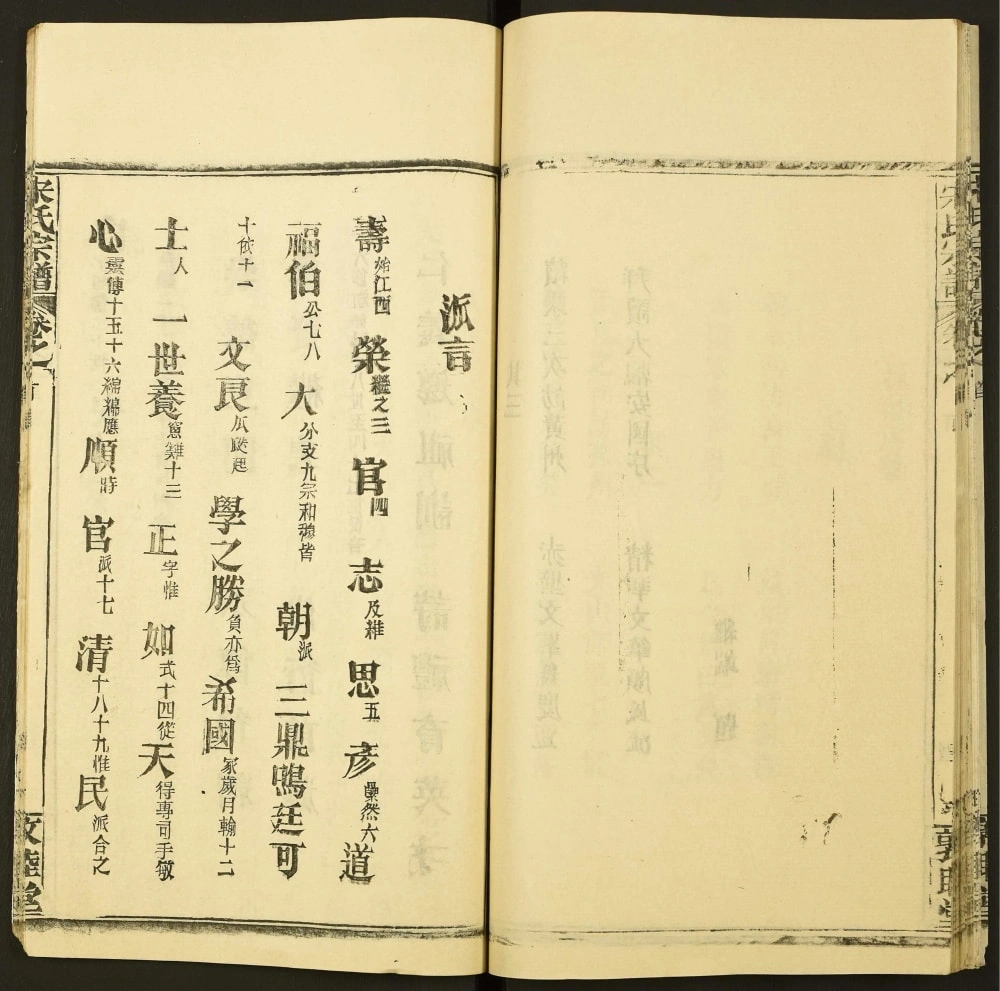 派言
壽始江西榮繼之三官四志及維思五彥彙然六道
福伯公七八大分支九宗和穆皆朝派三鼎鳴廷可
十依十一文艮瓜瓞起學之勝負亦為希國家歲月輸十二
士人一二世養 十三正字惟如式十四從天得專司手敏
心靈傳十五十六綿綿應順時官派十七清十八十九惟民派合之
宋氏宗譜 卷之
敦睦堂